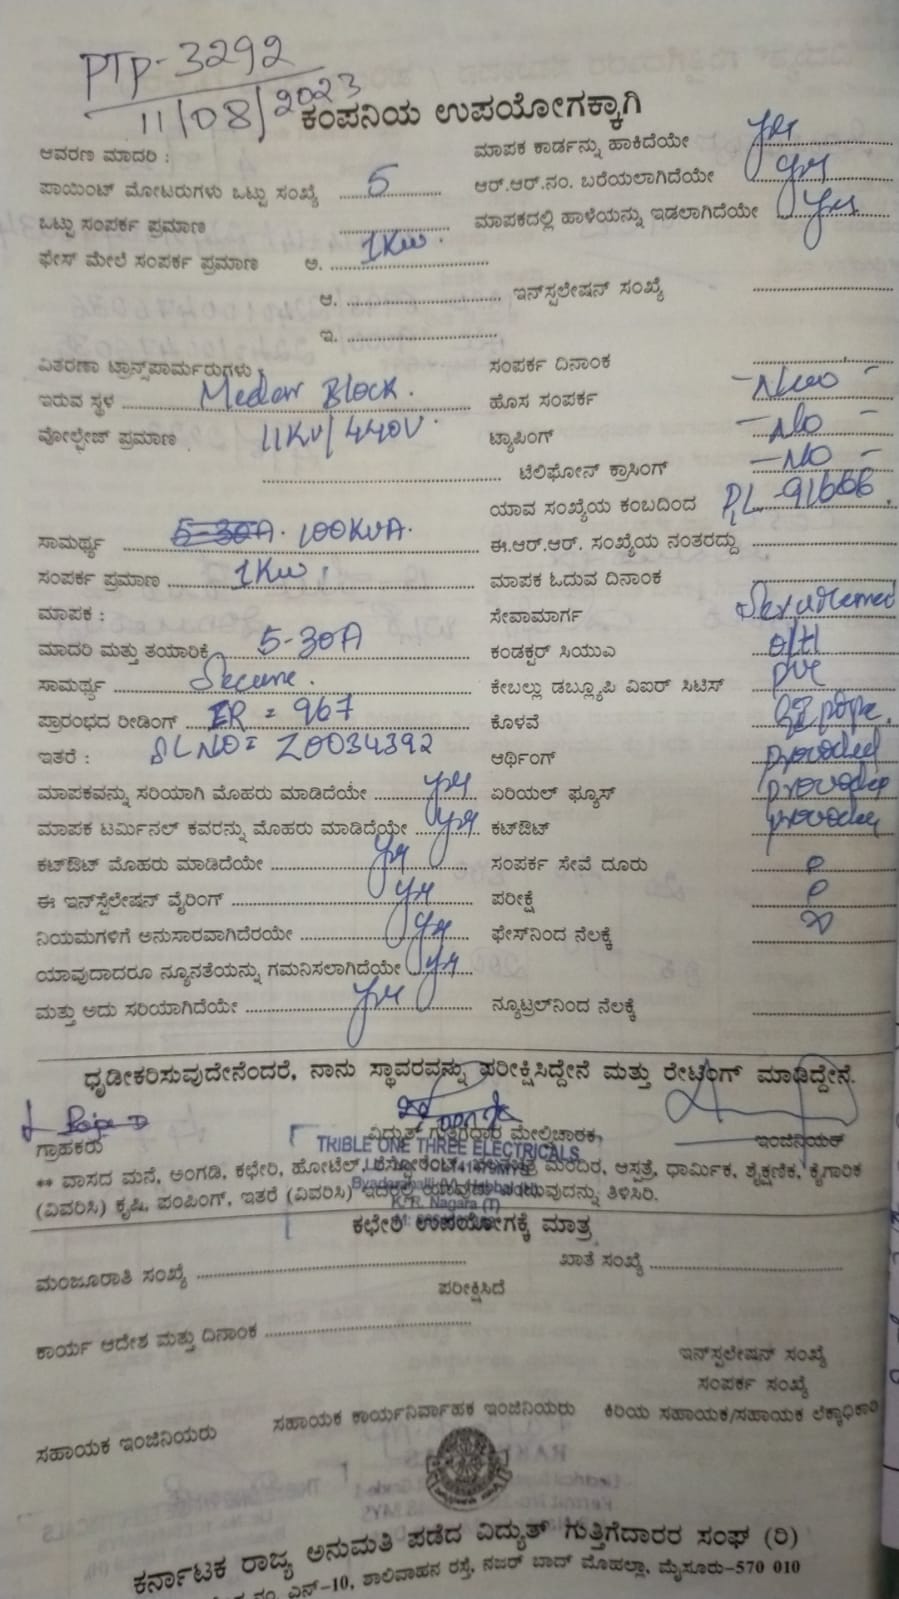 PTP-3292
11/08/2023
ಕಂಪನಿಯ ಉಪಯೋಗಕ್ಕಾಗಿ
ಆವರಣ ಮಾದರಿ :
ಮಾಪಕ ಕಾರ್ಡನ್ನು ಹಾಕಿದೆಯೇ yes
ಪಾಯಿಂಟ್ ಮೋಟರುಗಳು ಒಟ್ಟು ಸಂಖ್ಯೆ 5
ಆರ್.ಆರ್.ನಂ. ಬರೆಯಲಾಗಿದೆಯೇ yes
ಒಟ್ಟು ಸಂಪರ್ಕ ಪ್ರಮಾಣ
ಮಾಪಕದಲ್ಲಿ ಹಾಳೆಯನ್ನು ಇಡಲಾಗಿದೆಯೇ yes
ಫೇಸ್ ಮೇಲೆ ಸಂಪರ್ಕ ಪ್ರಮಾಣ ಅ. 1Kw.
ಆ. ಇನ್‌ಸ್ಪಲೇಷನ್ ಸಂಖ್ಯೆ
ಇ.
ವಿತರಣಾ ಟ್ರಾನ್ಸ್‌ಪಾರ್ಮರುಗಳು :
ಸಂಪರ್ಕ ದಿನಾಂಕ
ಇರುವ ಸ್ಥಳ Block.
ಹೊಸ ಸಂಪರ್ಕ
ವೋಲ್ಟೇಜ್ ಪ್ರಮಾಣ 11KV/440V.
ಟ್ಯಾಪಿಂಗ್ - No -
ಟೆಲಿಫೋನ್ ಕ್ರಾಸಿಂಗ್ - No -
ಯಾವ ಸಂಖ್ಯೆಯ ಕಂಬದಿಂದ
ಸಾಮರ್ಥ್ಯ 100KVA.
ಈ.ಆರ್.ಆರ್. ಸಂಖ್ಯೆಯ ನಂತರದ್ದು
ಸಂಪರ್ಕ ಪ್ರಮಾಣ 1Kw.
ಮಾಪಕ ಓದುವ ದಿನಾಂಕ
ಮಾಪಕ :
ಸೇವಾಮಾರ್ಗ
ಮಾದರಿ ಮತ್ತು ತಯಾರಿಕೆ 5-30A
ಕಂಡಕ್ಟರ್ ಸಿಯುಎ O/H
ಸಾಮರ್ಥ್ಯ Secure.
ಕೇಬಲ್ಲು ಡಬ್ಲ್ಯೂಪಿ ವಿಐಆರ್ ಸಿಟಿಸ್ PVC
ಪ್ರಾರಂಭದ ರೀಡಿಂಗ್ IR = 967
ಕೊಳವೆ GI pipe.
ಇತರೆ : SL NO = Z0034392
ಆರ್ಥಿಂಗ್ provided
ಮಾಪಕವನ್ನು ಸರಿಯಾಗಿ ಮೊಹರು ಮಾಡಿದೆಯೇ yes
ಏರಿಯಲ್ ಫ್ಯೂಸ್ provided
ಮಾಪಕ ಟರ್ಮಿನಲ್ ಕವರನ್ನು ಮೊಹರು ಮಾಡಿದೆಯೇ yes
ಕಟ್‌ಔಟ್ provided
ಕಟ್‌ಔಟ್ ಮೊಹರು ಮಾಡಿದೆಯೇ yes
ಸಂಪರ್ಕ ಸೇವೆ ದೂರು
ಈ ಇನ್‌ಸ್ಪೆಲೇಷನ್ ವೈರಿಂಗ್ yes
ಪರೀಕ್ಷೆ
ನಿಯಮಗಳಿಗೆ ಅನುಸಾರವಾಗಿದೆರಯೇ yes
ಫೇಸ್‌ನಿಂದ ನೆಲಕ್ಕೆ
ಯಾವುದಾದರೂ ನ್ಯೂನತೆಯನ್ನು ಗಮನಿಸಲಾಗಿದೆಯೇ yes
ಮತ್ತು ಅದು ಸರಿಯಾಗಿದೆಯೇ yes
ನ್ಯೂಟ್ರಲ್‌ನಿಂದ ನೆಲಕ್ಕೆ
ಧೃಡೀಕರಿಸುವುದೇನೆಂದರೆ, ನಾನು ಸ್ಥಾವರವನ್ನು ಪರೀಕ್ಷಿಸಿದ್ದೇನೆ ಮತ್ತು ರೇಟಿಂಗ್ ಮಾಡಿದ್ದೇನೆ.
ಗ್ರಾಹಕರು ವಿದ್ಯುತ್ ಗುತ್ತಿಗೆದಾರ ಮೇಲ್ವಿಚಾರಕ, ಇಂಜಿನಿಯರ್
TRIBLE ONE THREE ELECTRICALS
** ವಾಸದ ಮನೆ, ಅಂಗಡಿ, ಕಛೇರಿ, ಹೋಟೆಲ್, ಮಂದಿರ, ಆಸ್ಪತ್ರೆ, ಧಾರ್ಮಿಕ, ಶೈಕ್ಷಣಿಕ, ಕೈಗಾರಿಕ
(ವಿವರಿಸಿ) ಕೃಷಿ, ಪಂಪಿಂಗ್, ಇತರೆ (ವಿವರಿಸಿ) ಇದರಲ್ಲಿ ಯಾವುದು ಎಂಬುವುದನ್ನು ತಿಳಿಸಿರಿ.
K. R. Nagara (T)
ಕಛೇರಿ ಉಪಯೋಗಕ್ಕೆ ಮಾತ್ರ
ಮಂಜೂರಾತಿ ಸಂಖ್ಯೆ ಖಾತೆ ಸಂಖ್ಯೆ
ಪರೀಕ್ಷಿಸಿದೆ
ಕಾರ್ಯ ಆದೇಶ ಮತ್ತು ದಿನಾಂಕ
ಇನ್‌ಸ್ಪಲೇಷನ್ ಸಂಖ್ಯೆ
ಸಂಪರ್ಕ ಸಂಖ್ಯೆ
ಸಹಾಯಕ ಇಂಜಿನಿಯರು ಸಹಾಯಕ ಕಾರ್ಯನಿರ್ವಾಹಕ ಇಂಜಿನಿಯರು ಕಿರಿಯ ಸಹಾಯಕ/ಸಹಾಯಕ ಲೆಕ್ಕಾಧಿಕಾರಿ
ಕರ್ನಾಟಕ ರಾಜ್ಯ ಅನುಮತಿ ಪಡೆದ ವಿದ್ಯುತ್ ಗುತ್ತಿಗೆದಾರರ ಸಂಘ (ರಿ)
ನಂ. ಎನ್-10, ಶಾಲಿವಾಹನ ರಸ್ತೆ, ನಜರ್ ಬಾದ್ ಮೊಹಲ್ಲಾ, ಮೈಸೂರು-570 010